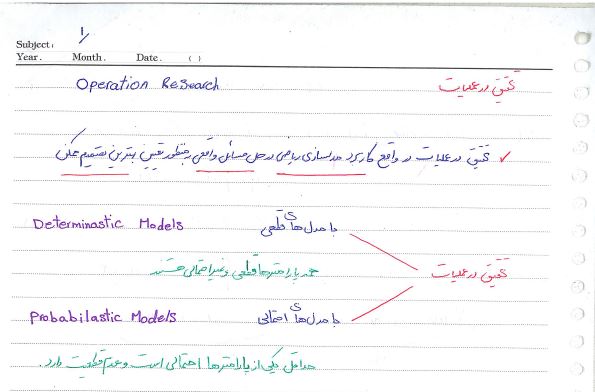 Subject: 1/
Year. Month. Date. ( )
Operation Research تحقیق در عملیات
✓ تحقیق در عملیات در واقع کاربرد مدلسازی ریاضی در حل مسائل واقعی بمنظور تعیین بهترین تصمیم ممکن
Determinastic Models با مدل‌های قطعی
همه پارامترها قطعی و غیراحتمالی هستند
تحقیق در عملیات
Probabilastic Models با مدل‌های احتمالی
حداقل یکی از پارامترها احتمالی است و عدم قطعیت دارد.